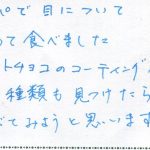 ペで目について
って食べました
トチョコのコーティング
種類も見つけたら
べてみようと思います